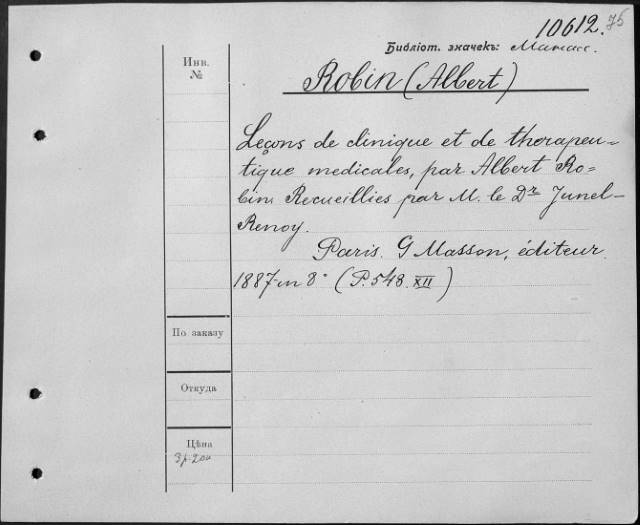 10612. 75
Библіот. значекъ:
Инв.
№
Robin (Albert)
Leçons de clinique et de therapeu-
tique medicales, par Albert Ro-
bin. Recueillies par M. le Dr Junel-
Renoy.
Paris. G Masson, éditeur.
1887-in 8° (P. 548. XII)
По заказу
Откуда
Цѣна